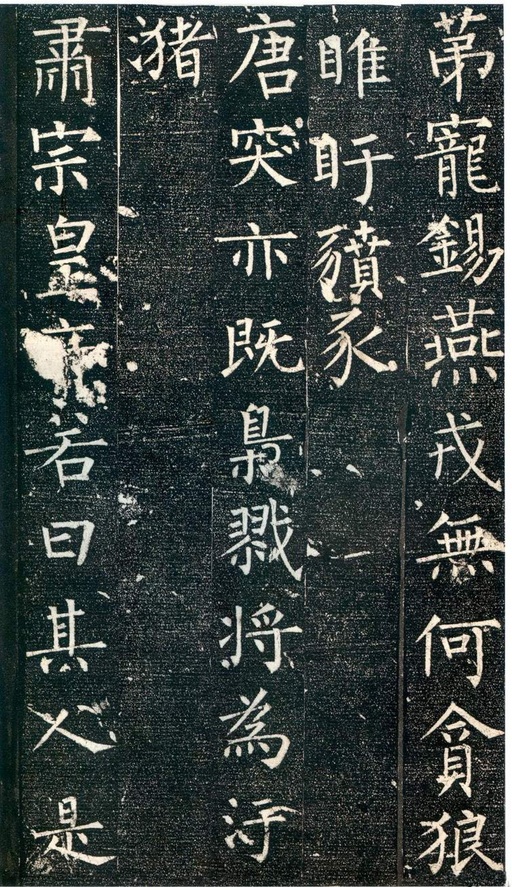 苐寵錫燕戎無何貪狼
睢盱豶豕
唐突亦既梟戮將為汙
瀦
肅宗皇帝若曰其人是